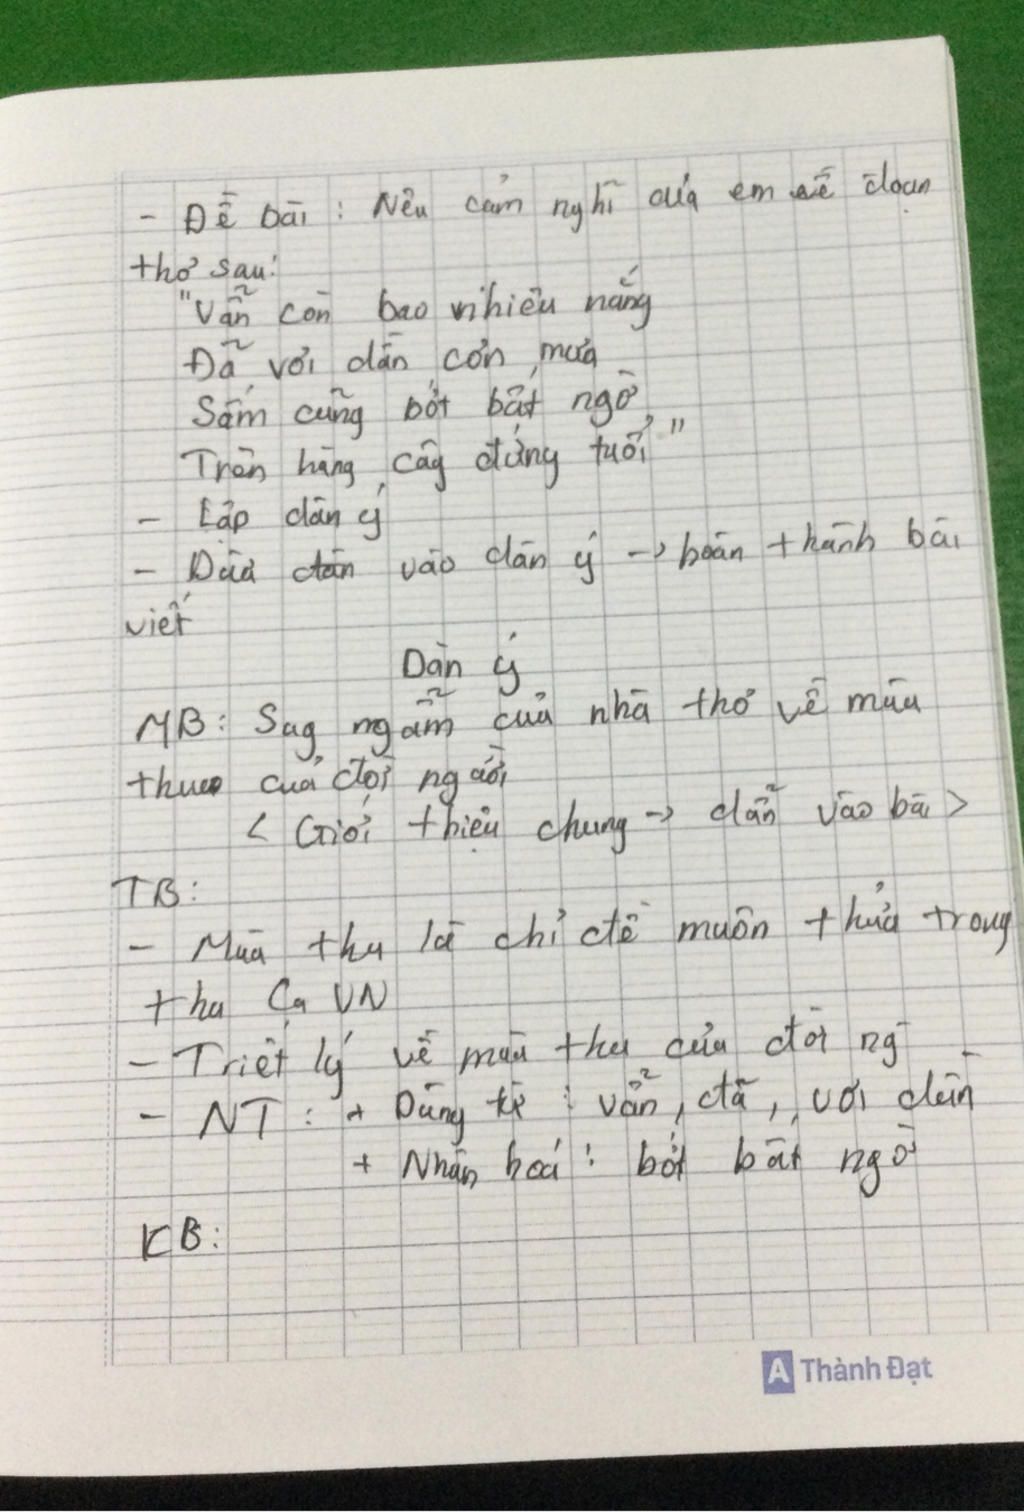 - Đề bài : Nêu cảm nghĩ của em về đoạn
thơ sau:
"Vẫn còn bao nhiêu nắng
Đã vơi dần cơn mưa
Sấm cũng bớt bất ngờ
Trên hàng cây đứng tuổi"
- Lập dàn ý
- Dựa dàn vào dàn ý -> hoàn thành bài
viết
Dàn ý
MB: Suy ngẫm của nhà thơ về mùa
thu của đời người
< Giới thiệu chung -> dẫn vào bài >
TB:
- Mùa thu là chỉ đề muôn thủa trong
thu Ca VN
- Triết lý về mùa thu của đời ng
- NT : + Dùng từ : vẫn, đã, vơi dần
+ Nhân hoá : bớt bất ngờ
KB:
A Thành Đạt